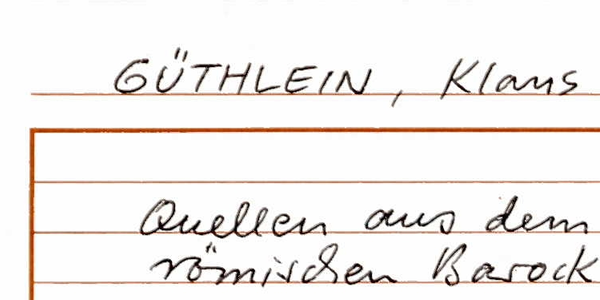 GÜTHLEIN, Klaus
Quellen aus dem
römischen Barock